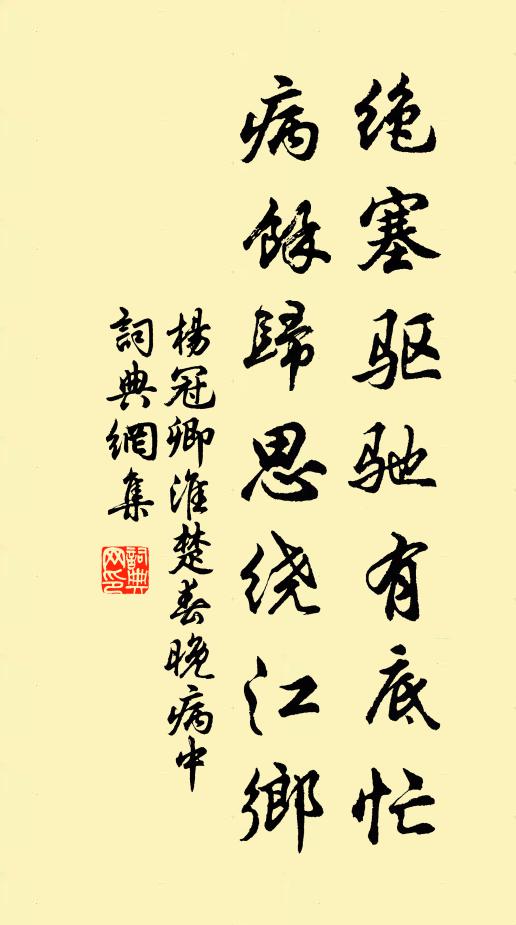 绝塞驱驰有底忙
病馀歸思绕江鄉
楊冠卿淮楚春晚病中
詞典網集
詞典网印